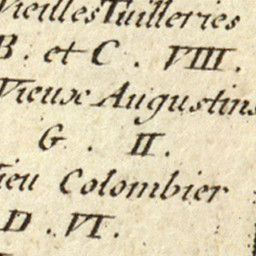 Vieilles Tuilleries
B. et C. VIII.
Vieux Augustins
G. II.
ieu Colombier
D. VI.